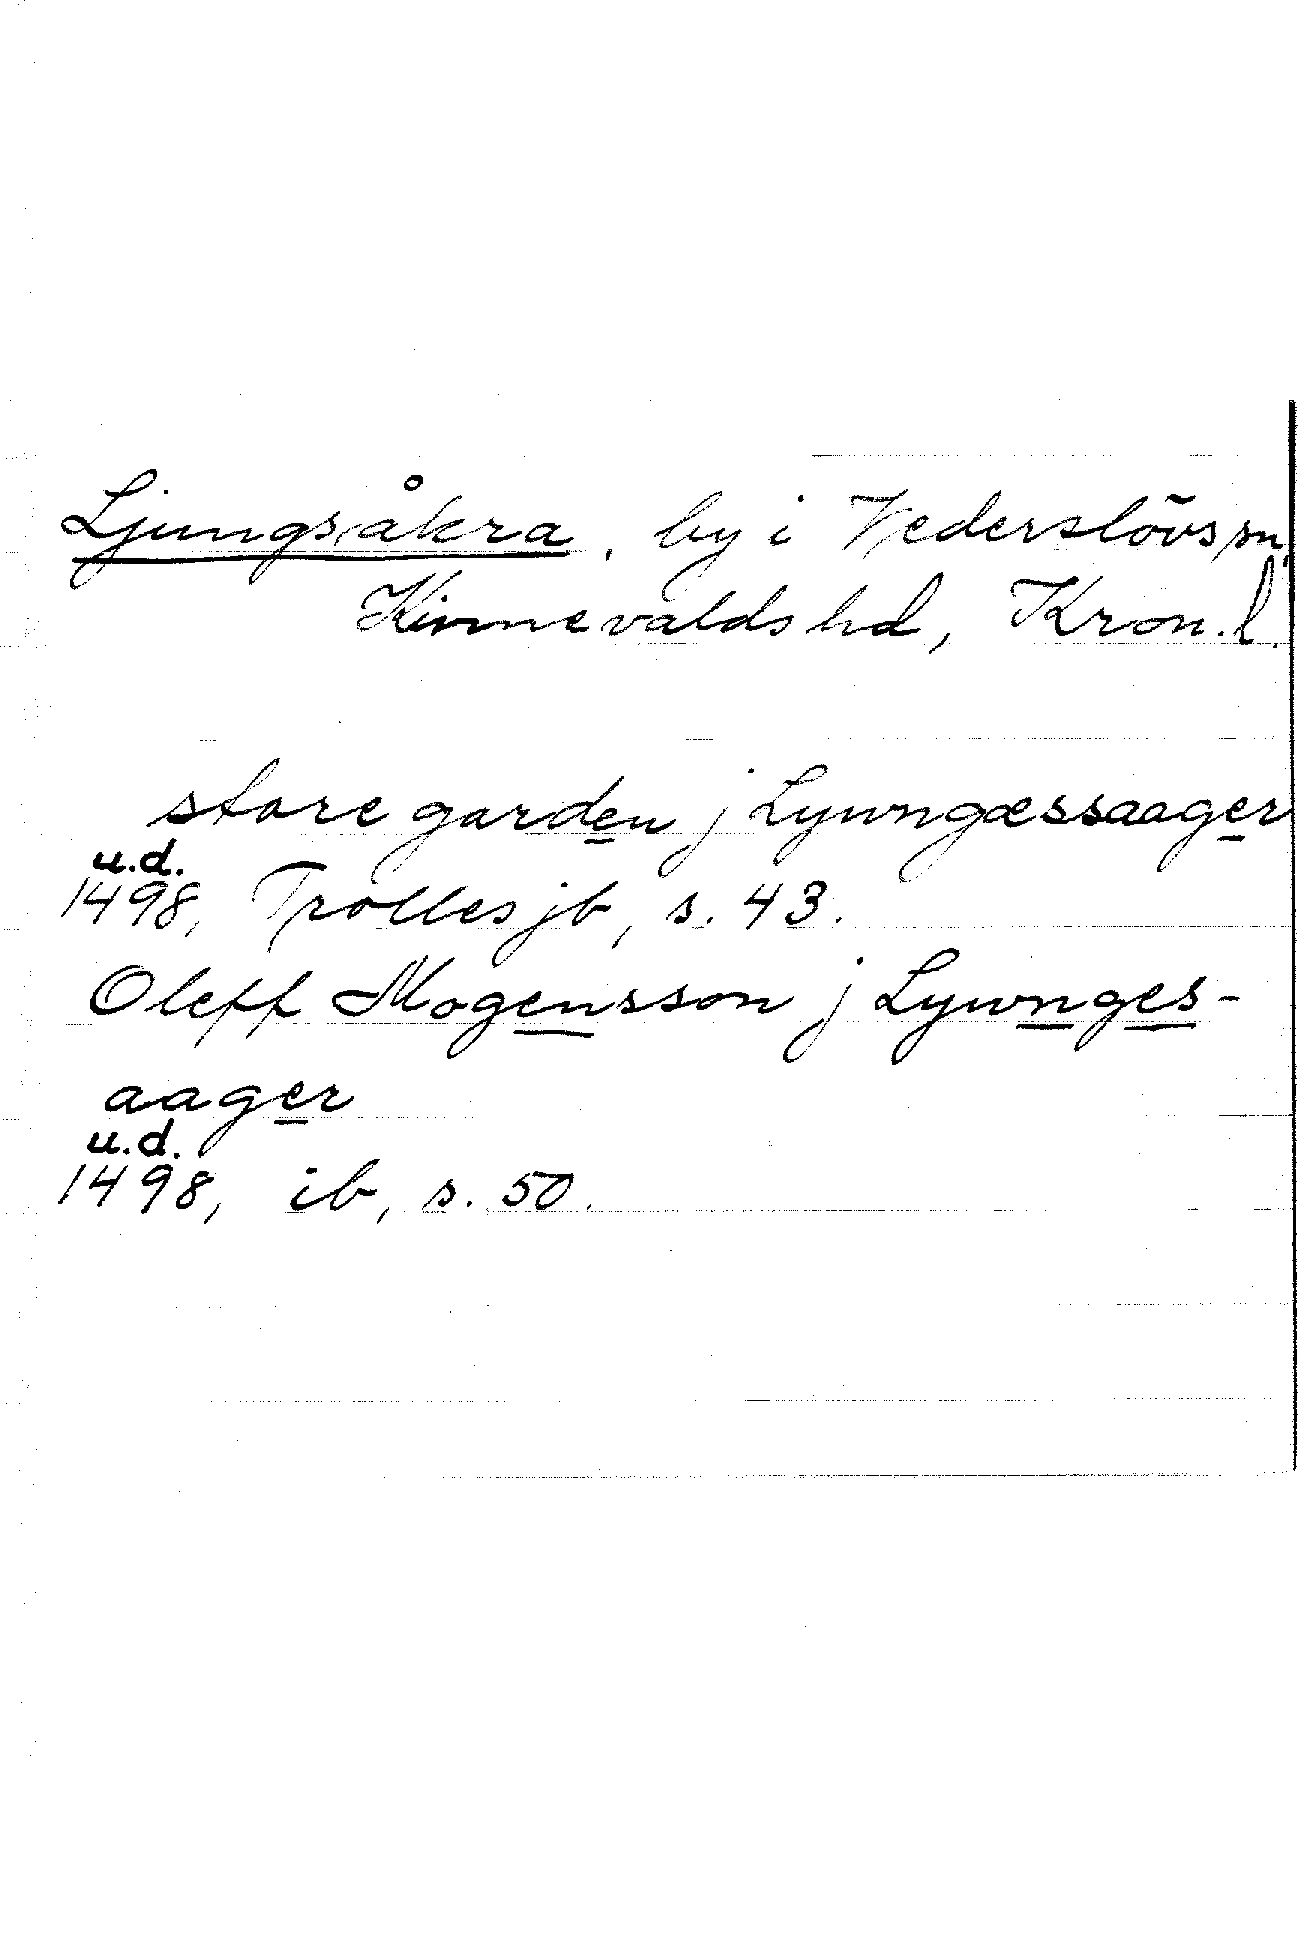 Ljungsåkra, by i Vederslövs sn,
Kinnevalds hd, Kron.l.
store garden j Lywngæssaager
u.d.
1498, Trolles jb, s. 43.
Oleff Mogensson j Lywnges-
aager
u.d.
1498, ib, s. 50.